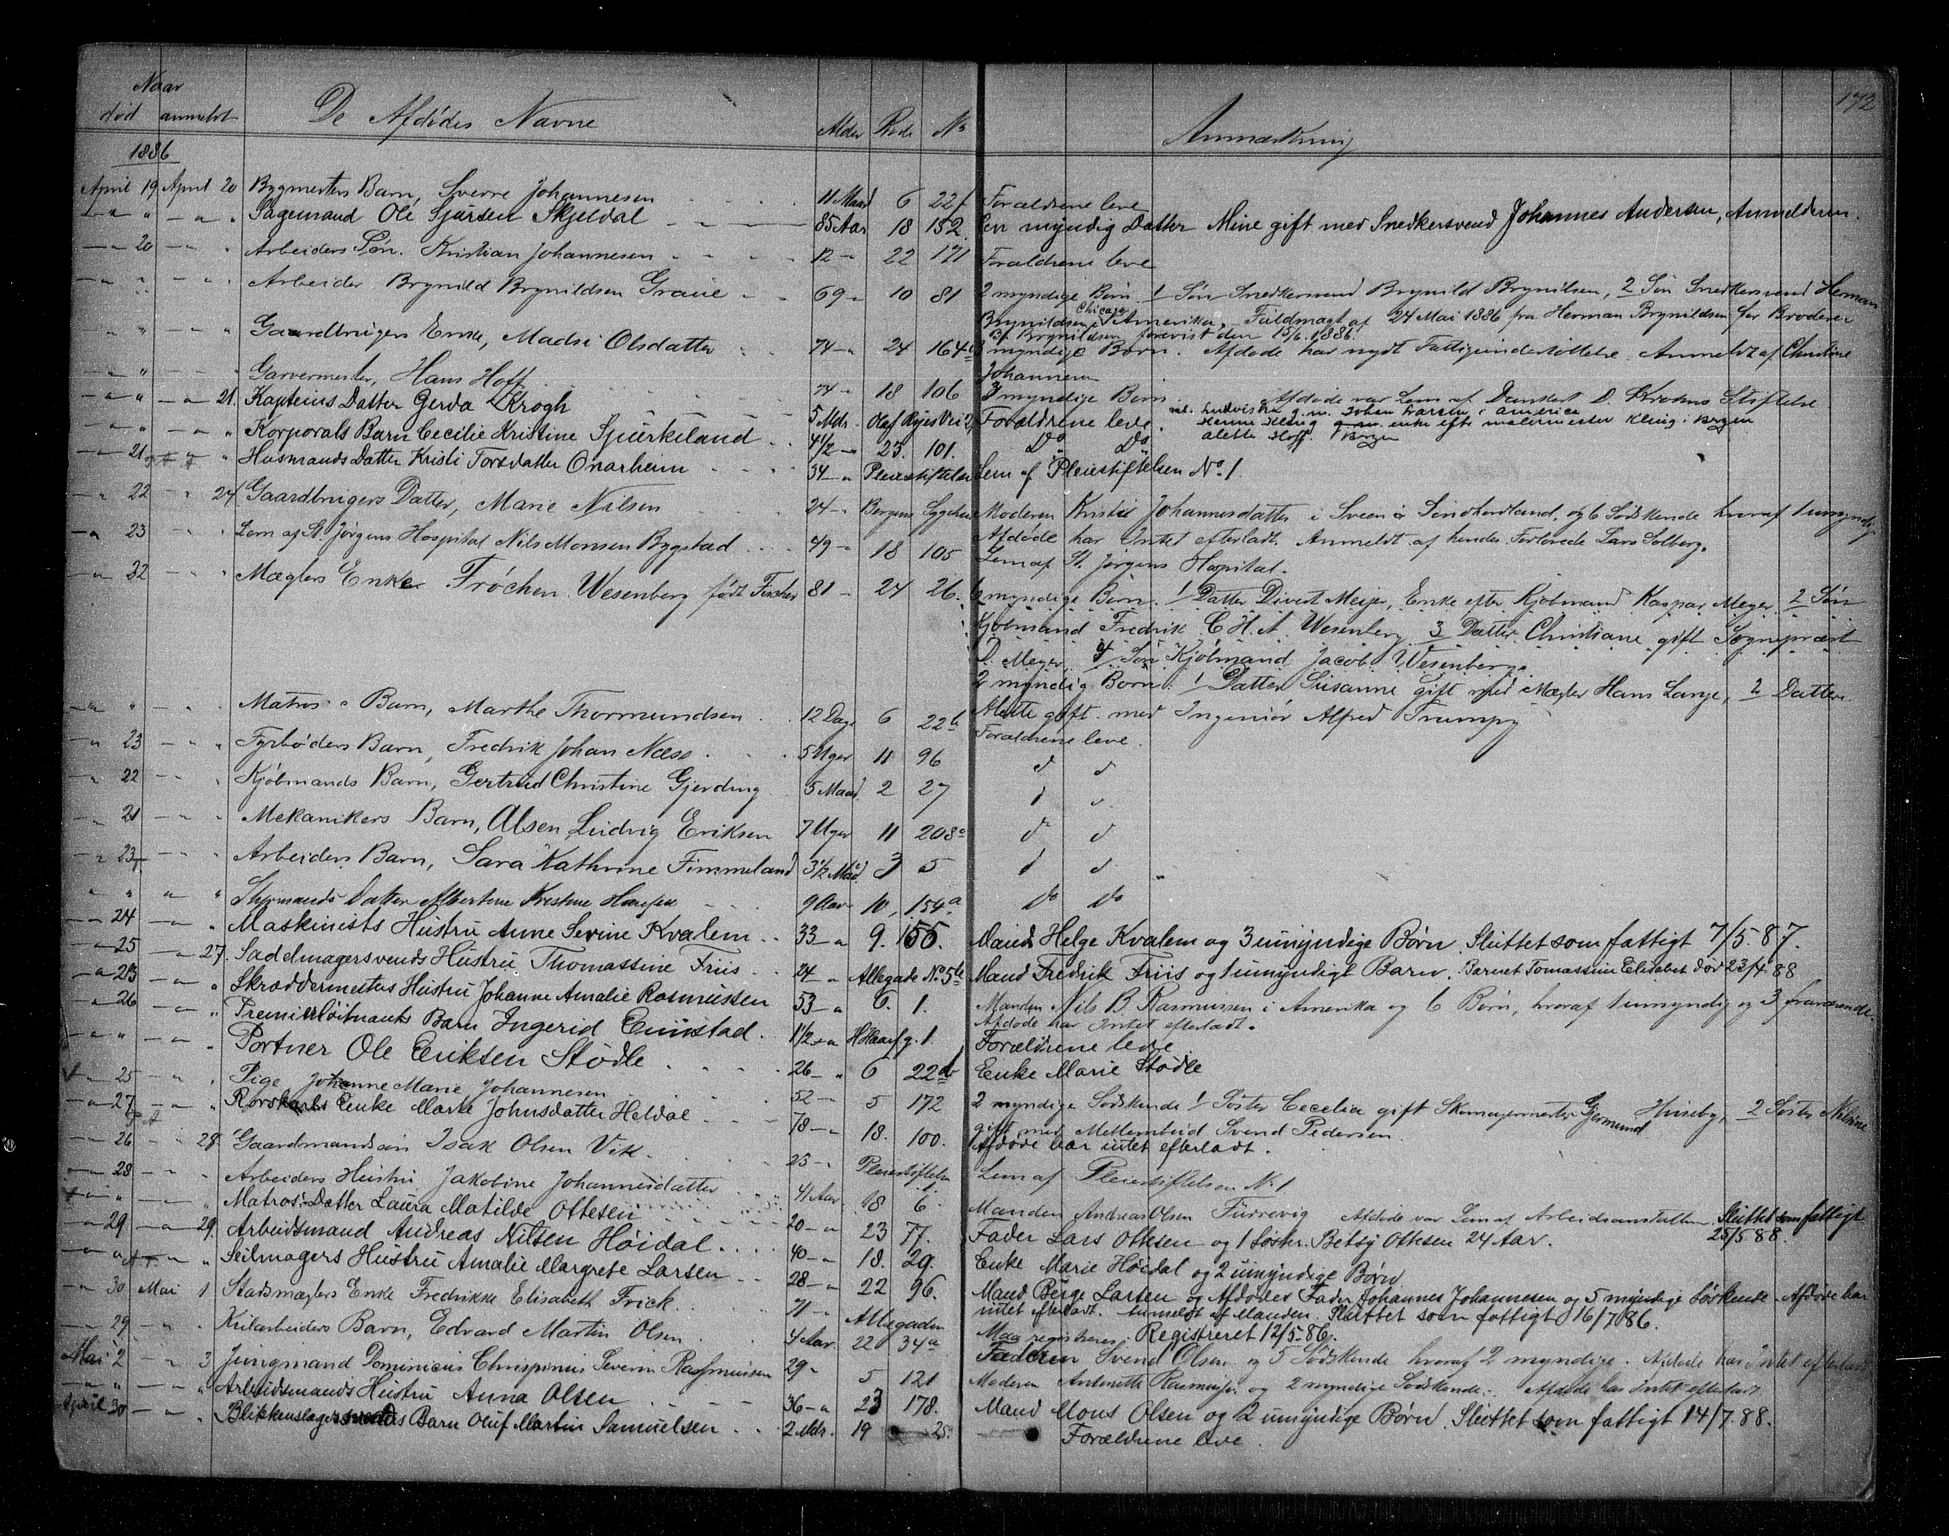 172
Naar
død anmeldt De Afdødes Navne Alder Rode No Anmærkning
1886
April 19 April 20 Bygmesters Barn, Sverre Johannesen 11 Maad 6 22f Forældrene leve
Sagemand Ole Sjursen Skjeldal 85 Aar 18 152. En myndig Datter Mine gift med Snedkersvend Johannes Andersen, Anmelderen.
20 Arbeiders Søn. Kristian Johannesen 12 22 171 Forældrene leve
Arbeider Brynild Brynildsen Graue 69 10 81 2 myndige Børn. 1 Søn Snedkersvend Brynild Brynilsen, 2 Søn Snedkersvend Herman
Brynildsen i Chicago Amerika, Fuldmagt af 24 Mai 1886 fra Herman Brynildsen for Broderen
B. Brynildsen forevist den 15/6 1886.
Gaardbrugers Enke, Madsi Olsdatter 74 24 164 myndige Børn. Afdøde har nydt Fattigunderstøttelse. Anmeldt af Christine
Johannesen
Garvermester, Hans Hoff 74 18 106 3 myndige Børn. Afdøde var Lem af Dankert D. Krohns Stiftelse
g. m. Johan Larsen i America
enke efter malermester Kling. Bergen
Alette Hoff. Bergen
21. Kapteins Datter Gerda Krogh 5 Mdr. Olaf Ryes Vei 2, Forældrene leve.
Korporals Barn Cecilie Kristine Spurkeland 4 1/2 23. 101. Do Do
21 Husmands Datter Kristi Torsdatter Onarheim 34 Pleiestiftelse Lem af Pleiestiftelsen No 1.
22 24 Gaardbrugers Datter, Marie Nilsen 24 Bergens Sygehus Moderen Kristi Johannesdatter i Sveen i Søndhordland, og 6 Sødskende hvoraf 1 umyndig
Afdøde har Intet efterladt. Anmeldt af hendes Forlovede Lars Solberg.
23 Lem af St. Jørgens Hospital Nils Monsen Bygstad 49 18 105 Lem af St. Jørgens Hospital.
22 Mæglers Enke Frøchen Wesenberg født Fischer 81 24 26. 6 myndige Børn. 1 Datter Divert Meyer, Enke efter Kjøbmand Kaspar Meyer. 2 Søn
Kjøbmand Fredrik C. H. A. Wesenberg 3 Datter Christiane gift Sogneprest
D. Meyer. 4 Søn Kjøbmand Jacob Wesenberg.
2 myndig Børn. 1 Datter Susanne gift med Mægler Hans Lange, 2 Datter
Alette gift med Ingeniør Alfred Trumpy
Matros Barn, Marthe Thormundsen 12 Dage 6 22b Forældrene leve.
23 Fyrbøders Barn, Fredrik Johan Næss 5 Uger 11 96 d d
22 Kjøbmands Barn, Gertrud Christine Gjerding 5 Maad 2 27 d d
21 Mekanikers Barn, Alsen Ludvig Eriksen 7 Uger 11 208a d d
23 Arbeiders Barn, Sara Kathrine Fimmeland 3 1/2 Maad 3 5 d d
Styrmands Datter Albertine Kristine Hansen 9 Aar 10, 154a Do Do
24 Maskinists Hustru Anne Sevine Kvalem 33 9. 155. Mand Helge Kvalem og 3 umyndige Børn. Sluttet som fattigt 7/5.87.
25 27. Sadelmagersvends Hustru Thomassine Friis 24 Allegade No 5 Mand Fredrik Friis og 1 umyndigt Barn. Barnet Tomassine Elisabet død 23/4 88
23 Skræddermesters Hustru Johanne Amalie Rasmussen 53 6. 1. Manden Nils B. Rasmussen i Amerika og 6 Børn, hvoraf 1 umyndig og 3 fraværende.
Afdøde har Intet efterladt.
26 Premierløitnants Barn Ingerid Enistad. 1 1/2 H. Haarf g. 1. Forældrene leve
Portner Ole Eriksen Stødle 26 6 22b Enke Marie Stødle
25 Pige Johanne Marie Johannesen 52 5 172 2 myndige Sødskende 1 Søster Cecelia gift Skomagermester Gjermund Huseby, 2 Søster Nilsine
gift med Svend Pedersen.
27 Rorskarls Enke Marie Johnsdatter Heldal 78 18. 100. Afdøde har intet efterladt.
26 28. Gaardmandssøn Isak Olsen Vik. 25 Pleiestiftelsen 1. Lem af Pleiestiftelsen No 1
28 Arbeiders Hustru Jakobine Johannesdatter 41 Aar 18 6. Manden Andreas Olsen Furrevig Afdøde var Lem af Arbeidsanstalten Sluttet som fattigt
25/5.88.
Matros Datter Laura Matilde Ottesen 20 23 77. Fader Lars Ottesen og 1 Søster Betsy Ottesen 24 Aar.
29 29. Arbeidsmand Andreas Nilsen Høidal 40 18. 29. Enke Marie Høidal og 2 umyndige Børn
Seilmagers Hustru Amalie Margrete Larsen 28 22 96. Mand Børge Larsen og Afdødes Fader Johannes Johannesen og 5 myndige Sørkende. Afdøde har
intet efterladt. Anmeldt af Manden. Sluttet som fattigt 16/7.86.
30 Mai 1 Stadsmæglers Enke Fredrikke Elisabeth Frick 71 Allegaden Maa registreres. Registreret 12/5-86.
29 Kularbeiders Barn, Edvard Martin Olsen 4 Aar 22 34a Faderen Svend Olsen og 5 Sødskende hvoraf 2 myndige. Afdøde har Intet efterladt
Mai 2 3 Jungmand Dominicus Chrispinus Severin Rasmussen 29 5 121 Moderen Antonette Rasmussen og 2 myndige Sødskende. Afdøde har Intet efterladt
Arbeidsmands Hustru Anna Olsen 36 23 178. Mand Mons Olsen og 2 umyndige Børn. Sluttet som fattigt 14/7.88.
April 30 Blikkenslagersvends Barn Oluf Martin Samuelsen 2 Mdr. 19 25. Forældrene leve.